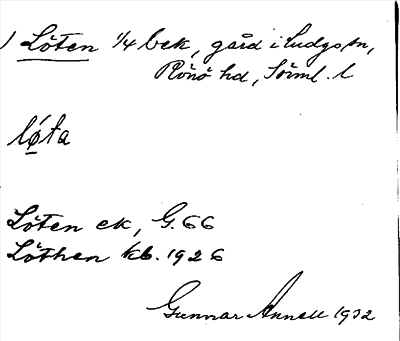 1 Löten 1/4 bek, gård i Ludgo sn,
Rönö hd, Sörml. l
lǿta
Löten ek, G. 66
Löthen kb. 1926
Gunnar Annell 1932